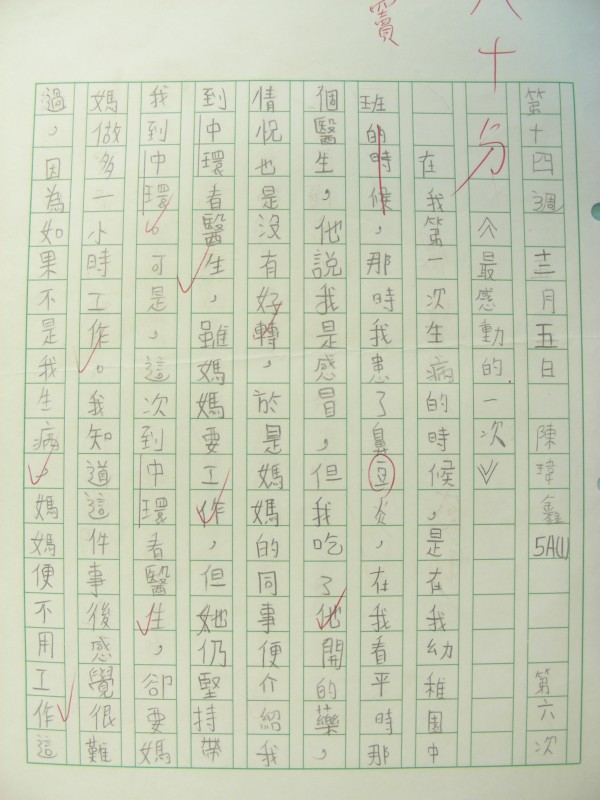 八十分
竇
第十四週 十二月五日 陳瑋鑫 5A(1) 第六次
︿最感動的一次﹀
在我第一次生病的時候，是在我幼稚園中
班的時候，那時我患了鼻豆炎，在我看平時那
個醫生，他說我是感冒，但我吃了他開的藥，
情況也是沒有好轉，於是，媽媽的同事便介紹我
到中環看醫生，雖媽媽要工作，但她仍堅持帶
我到中環。可是，這次到中環看醫生，卻要媽
媽做多一小時工作。我知道這件事後感覺很難
過，因為如果不是我生病。媽媽便不用工作這